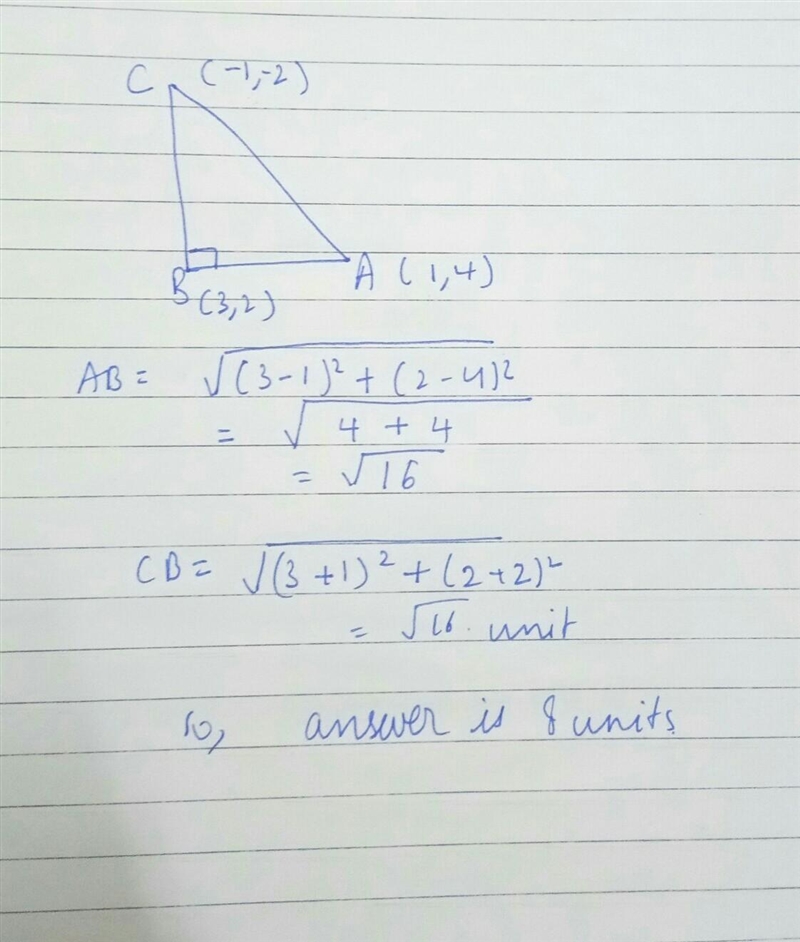 C (-1,-2)
B (3,2)
A (1,4)
AB = √(3-1)² + (2-4)²
= √4 + 4
= √16
CB = √(3+1)² + (2+2)²
= √16. unit
so, answer is 8 units